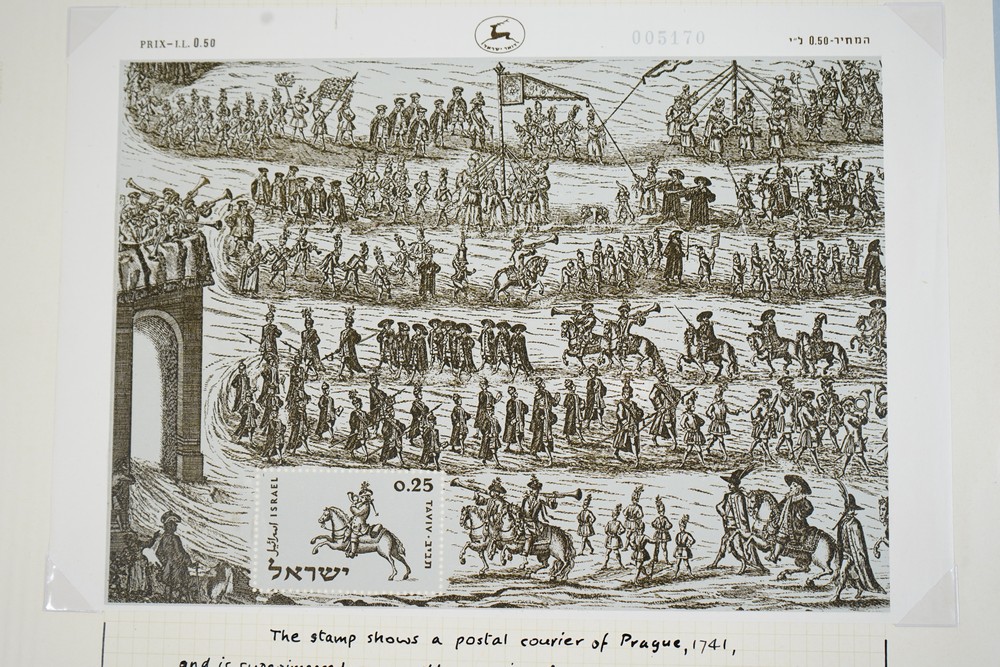 PRIX-I.L. 0.50
דואר ישראל
005170
המחיר-0.50 ל"י
ISRAEL
اسرائيل
0.25
TAVIV · תבי"ב
ישראל
The stamp shows a postal courier of Prague, 1741,
and is superimposed